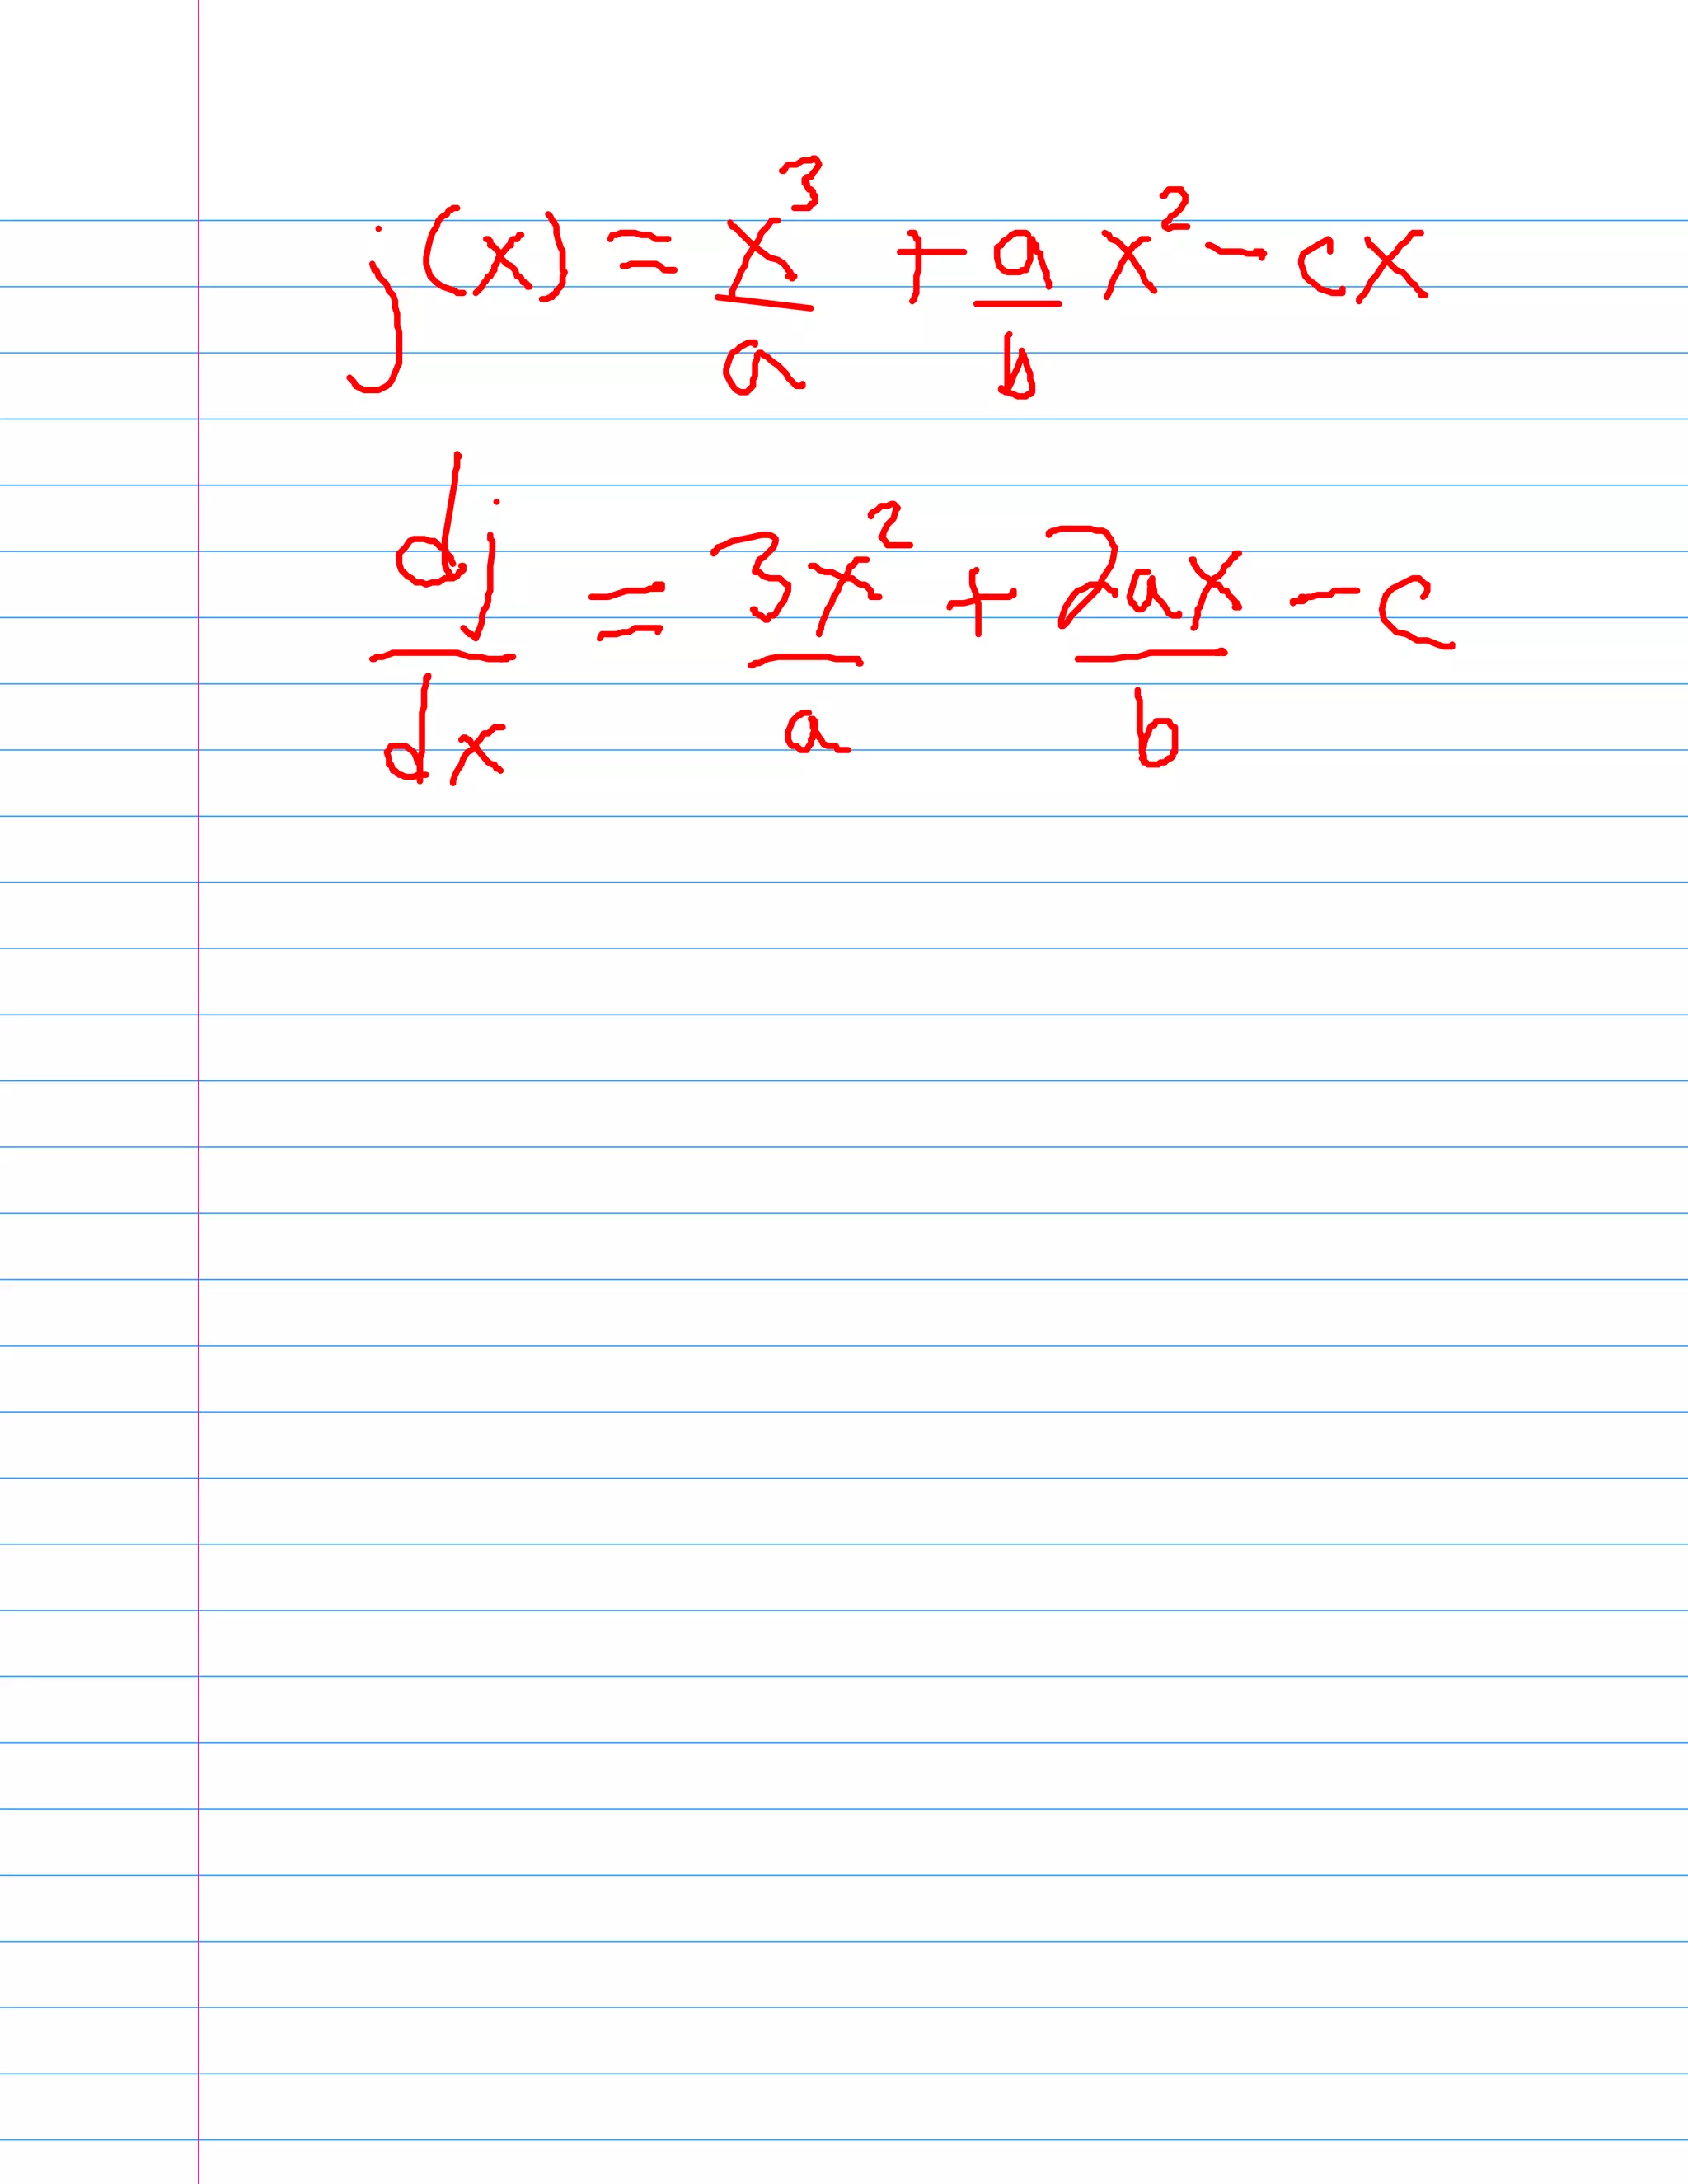 j(x) = x³/a + a/b x² - cx
dj/dx = 3x²/a + 2ax/b - c